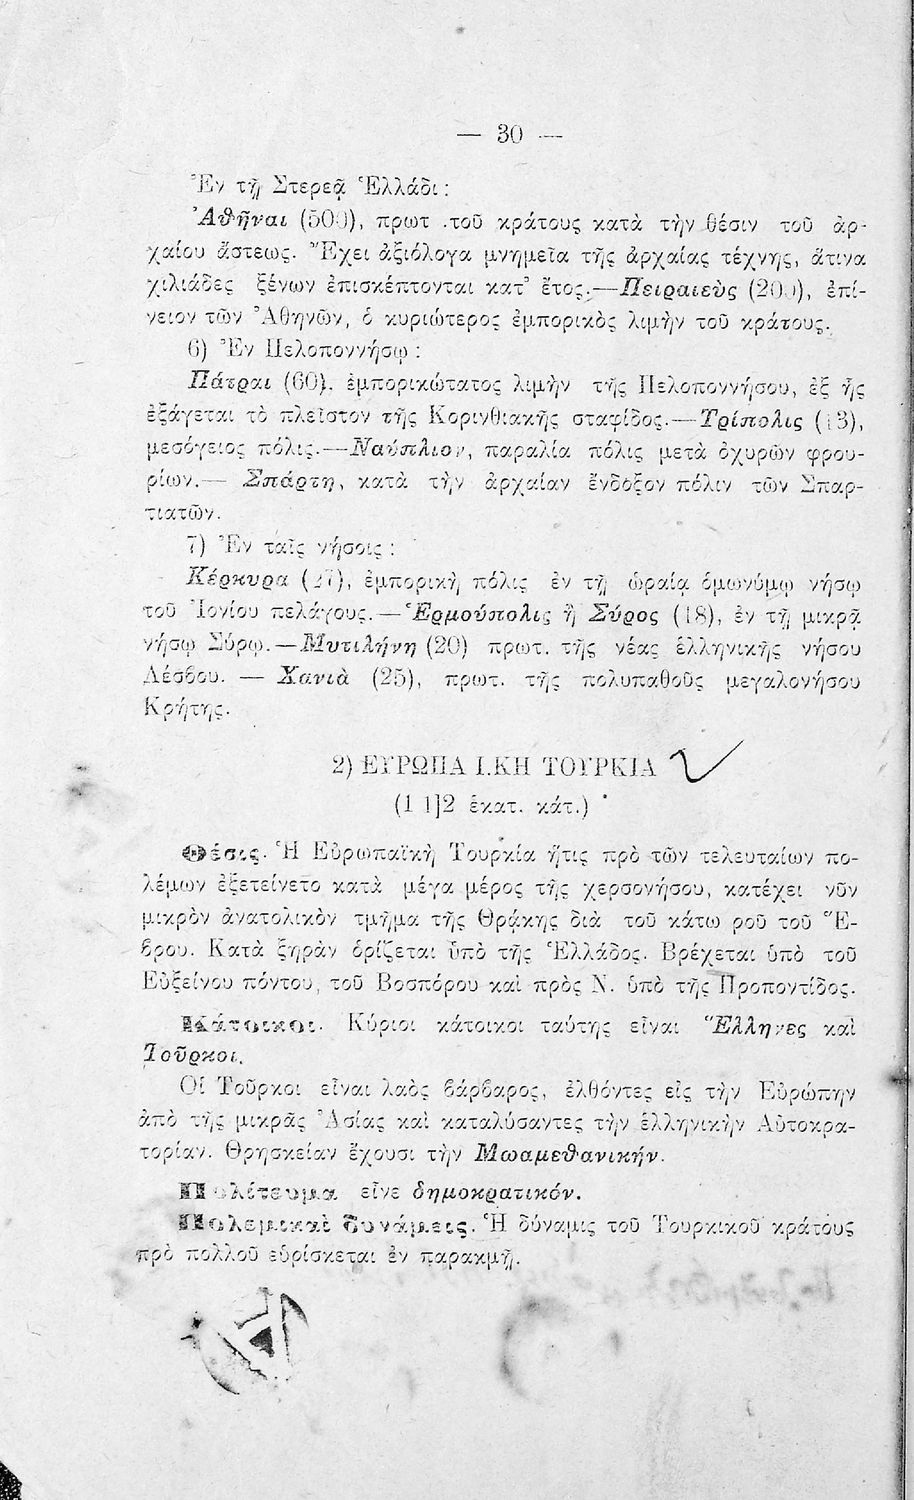 — 30 —
Ἐν τῇ Στερεᾷ Ἑλλάδι :
Ἀθῆναι (500), πρωτ. τοῦ κράτους κατὰ τὴν θέσιν τοῦ ἀρ-
χαίου ἄστεως. Ἔχει ἀξιόλογα μνημεῖα τῆς ἀρχαίας τέχνης, ἅτινα
χιλιάδες ξένων ἐπισκέπτονται κατ' ἔτος.—Πειραιεὺς (200), ἐπί-
νειον τῶν Ἀθηνῶν, ὁ κυριώτερος ἐμπορικὸς λιμὴν τοῦ κράτους.
6) Ἐν Πελοποννήσῳ :
Πάτραι (60), ἐμπορικώτατος λιμὴν τῆς Πελοποννήσου, ἐξ ἧς
ἐξάγεται τὸ πλεῖστον τῆς Κορινθιακῆς σταφίδος.—Τρίπολις (13),
μεσόγειος πόλις.—Ναύπλιον, παραλία πόλις μετὰ ὀχυρῶν φρου-
ρίων.— Σπάρτη, κατὰ τὴν ἀρχαίαν ἔνδοξον πόλιν τῶν Σπαρ-
τιατῶν.
7) Ἐν ταῖς νήσοις :
Κέρκυρα (27), ἐμπορικὴ πόλις ἐν τῇ ὡραίᾳ ὁμωνύμῳ νήσῳ
τοῦ Ἰονίου πελάγους.—Ἑρμούπολις ἢ Σύρος (18), ἐν τῇ μικρᾷ
νήσῳ Σύρῳ.—Μυτιλήνη (20) πρωτ. τῆς νέας ἑλληνικῆς νήσου
Λέσβου. — Χανιὰ (25), πρωτ. τῆς πολυπαθοῦς μεγαλονήσου
Κρήτης.
2) ΕΥΡΩΠΑΪΚΗ ΤΟΥΡΚΙΑ
(1 1]2 ἑκατ. κάτ.)
Θέσις. Ἡ Εὐρωπαϊκὴ Τουρκία ἥτις πρὸ τῶν τελευταίων πο-
λέμων ἐξετείνετο κατὰ μέγα μέρος τῆς χερσονήσου, κατέχει νῦν
μικρὸν ἀνατολικὸν τμῆμα τῆς Θράκης διὰ τοῦ κάτω ροῦ τοῦ Ἕ-
βρου. Κατὰ ξηρὰν ὁρίζεται ὑπὸ τῆς Ἑλλάδος. Βρέχεται ὑπὸ τοῦ
Εὐξείνου πόντου, τοῦ Βοσπόρου καὶ πρὸς Ν. ὑπὸ τῆς Προποντίδος.
Κάτοικοι. Κύριοι κάτοικοι ταύτης εἶναι Ἕλληνες καὶ
Τοῦρκοι.
Οἱ Τοῦρκοι εἶναι λαὸς βάρβαρος, ἐλθόντες εἰς τὴν Εὐρώπην
ἀπὸ τῆς μικρᾶς Ἀσίας καὶ καταλύσαντες τὴν ἑλληνικὴν Αὐτοκρα-
τορίαν. Θρησκείαν ἔχουσι τὴν Μωαμεθανικήν.
Πολίτευμα εἶνε δημοκρατικόν.
Πολεμικαὶ δυνάμεις. Ἡ δύναμις τοῦ Τουρκικοῦ κράτους
πρὸ πολλοῦ εὑρίσκεται ἐν παρακμῇ.